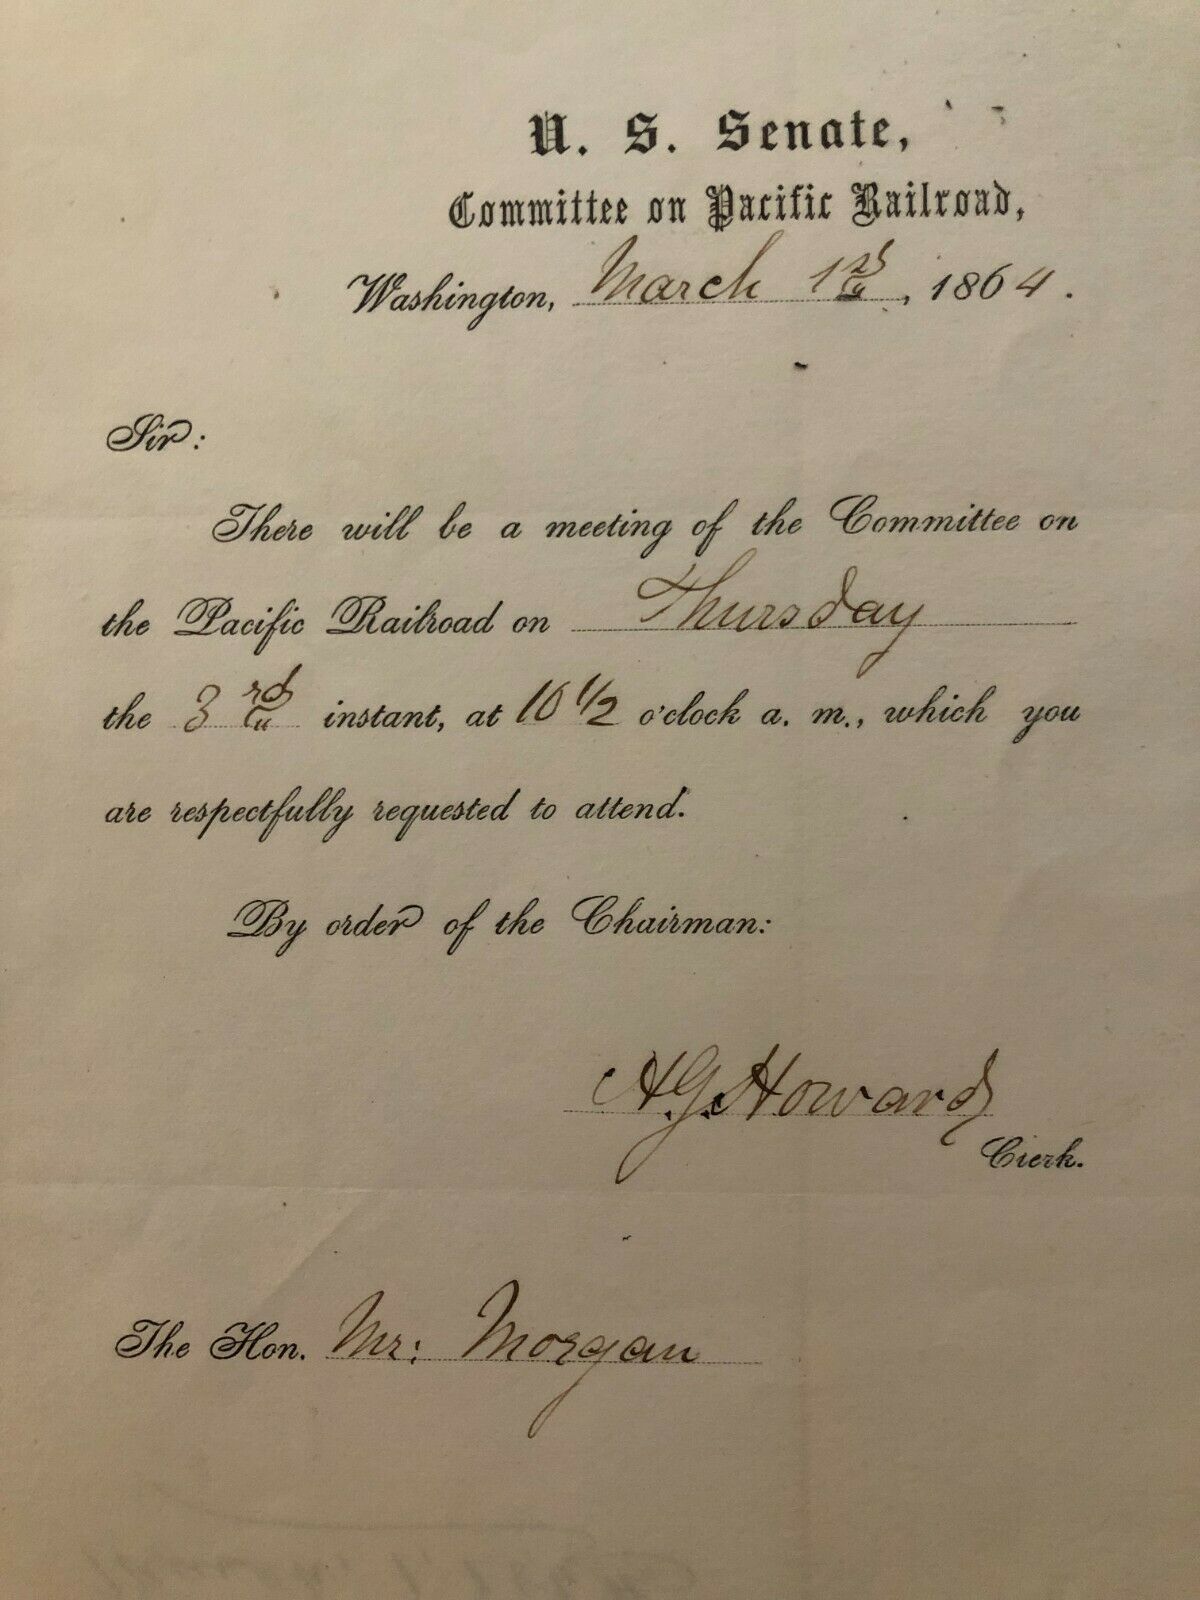 U. S. Senate,
Committee on Pacific Railroad,
Washington, March 1st, 1864.
Sir:
There will be a meeting of the Committee on
the Pacific Railroad on Thursday
the 3rd instant, at 10 1/2 o'clock a. m., which you
are respectfully requested to attend.
By order of the Chairman:
A.G. Howard
Clerk.
The Hon. Mr: Morgan